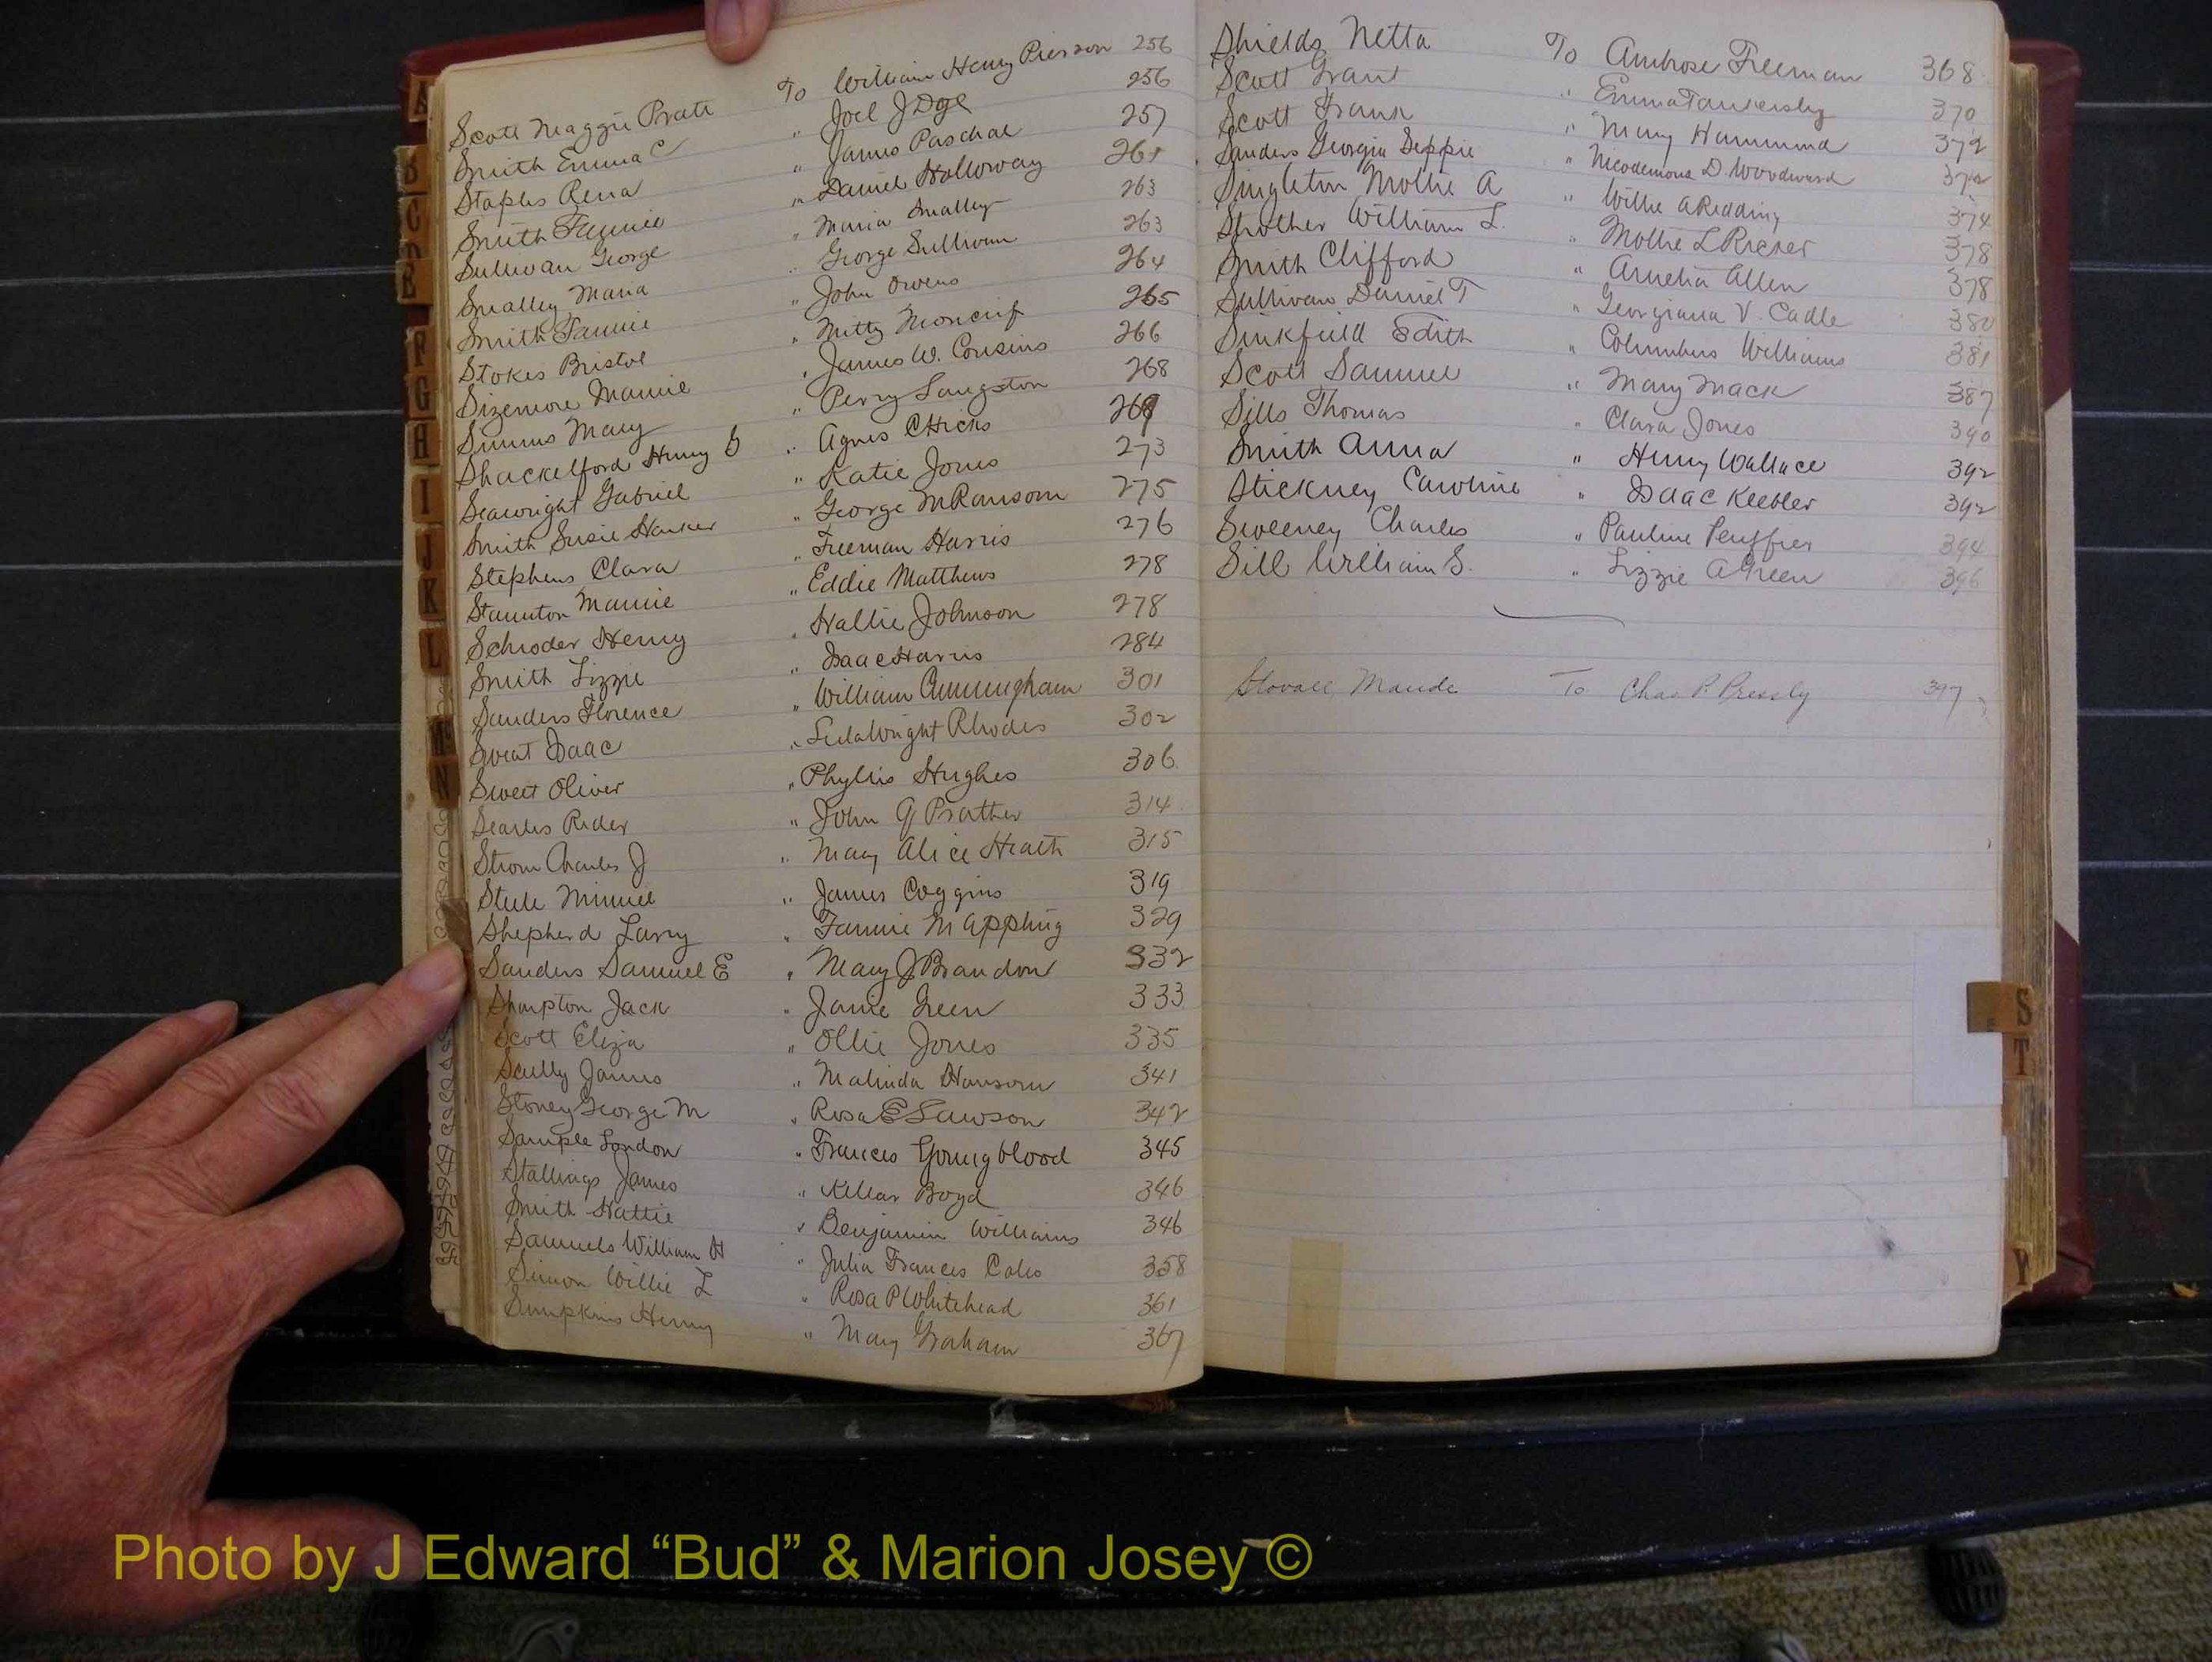 Scott Maggie Pratt To William Henry Pierson 256
Smith Emma C " Joel J Doge 256
Staples Rena " James Paschal 257
Smith Fannie " Daniel Holloway 261
Sullivan George " Maria Smalley 263
Smalley Maria " George Sullivan 263
Smith Fannie " John Owens 264
Stokes Bristol " Mitty Moncrif 265
Sizemore Mamie " James W. Cousins 266
Simms Mary " Perry Langston 268
Shackelford Henry " Agnes C Hicks 269
Seawright Gabriel " Katie Jones 273
Smith Susie Harker " George M Ransom 275
Stephens Clara " Freeman Harris 276
Staunton Mamie " Eddie Matthews 278
Schroder Henry " Hallie Johnson 278
Smith Lizzie " Isaac Harris 284
Sanders Florence " William Cunningham 301
Sweat Isaac " Lula Wright Rhodes 302
Sweet Oliver " Phyllis Hughes 306
Searles Rider " John G Prather 314
Strom Charles J " Mary Alice Heath 315
Steele Minnie " James Coggins 319
Shepherd Larry " Fannie M Appling 329
Sanders Samuel E " Mary J Brandon 332
Shimpton Jack " Janie Green 333
Scott Eliza " Ollie Jones 335
Scully James " Malinda Hansom 341
Stoney George M " Rosa E Lawson 342
Sample London " Frances Youngblood 345
Stallings James " Killar Boyd 346
Smith Hattie " Benjamin Williams 346
Samuels William H " Julia Frances Coles 358
Simon Willie L " Rosa P Whitehead 361
Simpkins Henry " Mary Graham 367
Shields Netta To Ambrose Freeman 368
Scott Grant " Emma Tankersley 370
Scott Frank " Mary Hammond 372
Sanders Georgia Seppie " Nicodemous D. Woodward 372
Singleton Mollie A " Willie A Redding 374
Strother William L. " Mollie L Ricker 378
Smith Clifford " Amelia Allen 378
Sullivan Daniel T " Georgiana V. Cadle 380
Sinkfield Edith " Columbus Williams 381
Scott Samuel " Mary Mack 387
Sills Thomas " Clara Jones 390
Smith Anna " Henry Wallace 392
Stickney Caroline " Isaac Keebler 392
Sweeney Charles " Pauline Peuffier 394
Sill William S. " Lizzie A Green 396
Stovall Maude To Chas P. Pressly 397
A
B
C
D
E
F
G
H
I
J
K
L
M
N
S
T
Y
Photo by J Edward “Bud” & Marion Josey ©